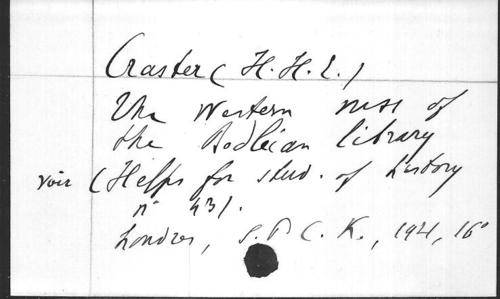 Craster (H. H. E.)
The Western mss of
the Bodleian library
voir (Helps for stud. of history
n° 43).
Londres, S. P. C. K., 1921, 16°